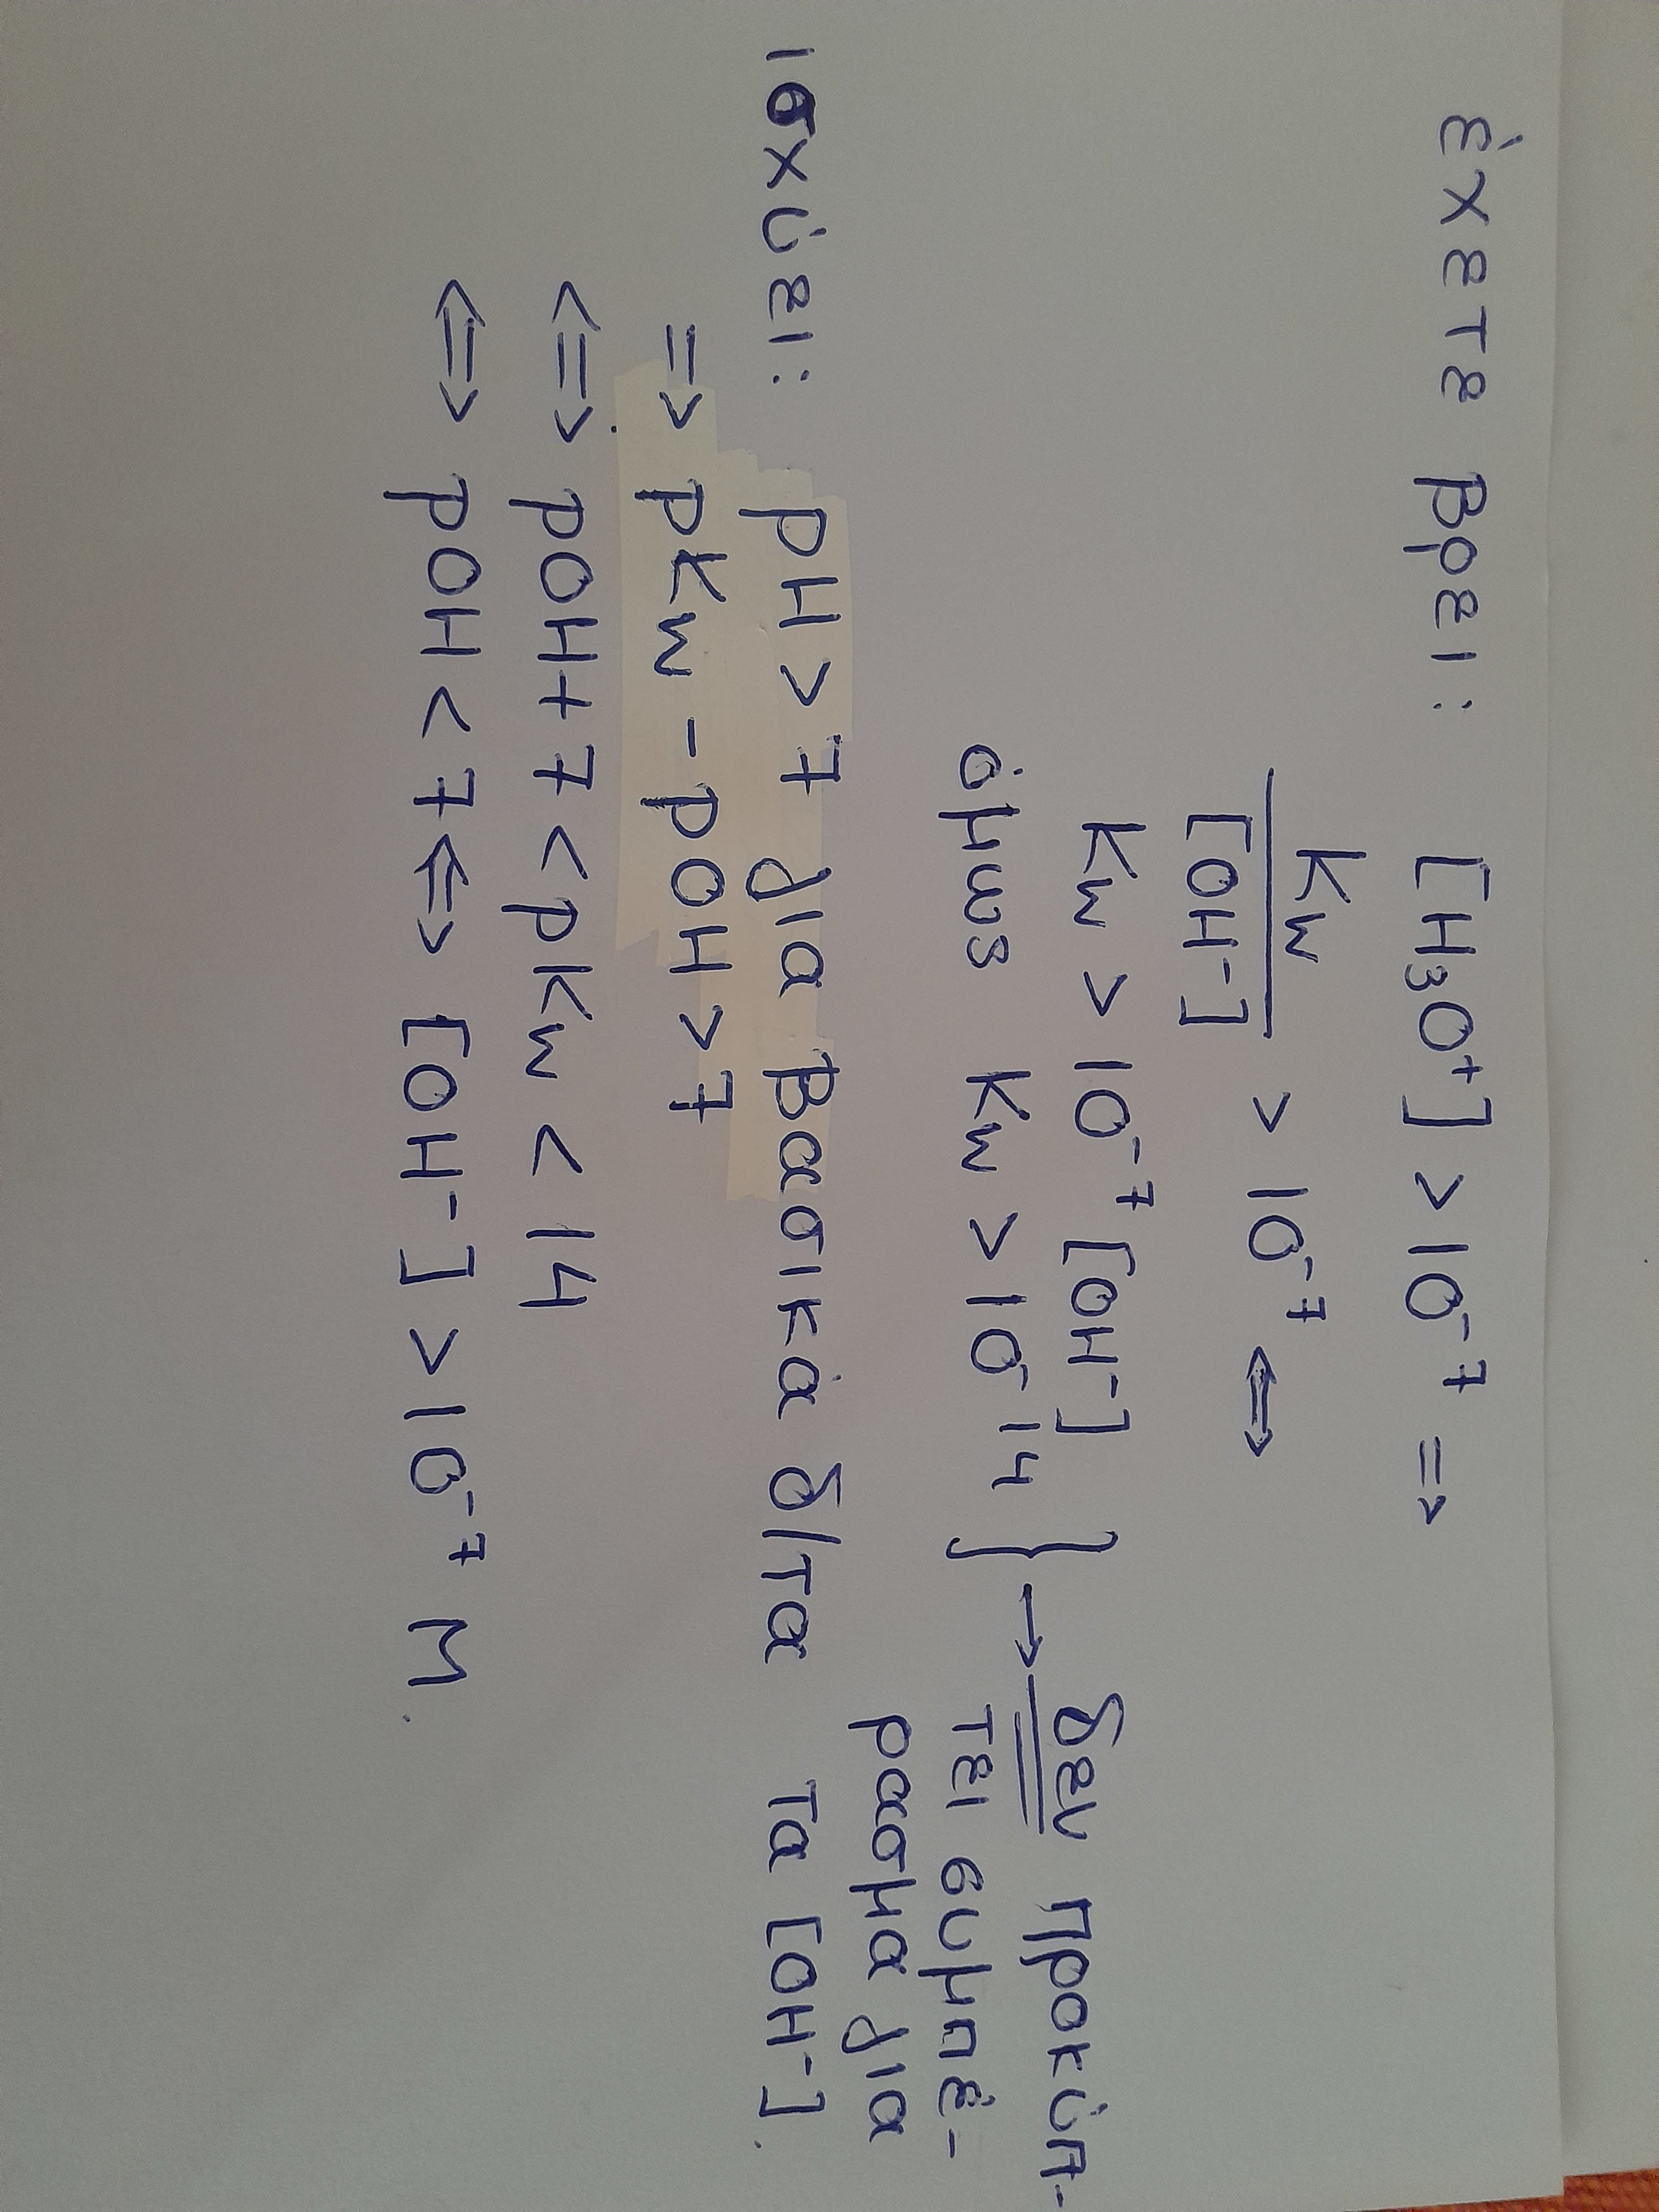 έχετε βρει: [H₃O⁺] > 10⁻⁷ =>
Kw / [OH⁻] > 10⁻⁷ <=>
Kw > 10⁻⁷ [OH⁻]
όμως Kw > 10⁻¹⁴ } → δεν προκύπ-
τει συμπέ-
ρασμα για
τα [OH⁻].
ισχύει: pH > 7 για βασικά δ/τα
=> pKw - pOH > 7
<=> pOH + 7 < pKw < 14
<=> pOH < 7 <=> [OH⁻] > 10⁻⁷ M.